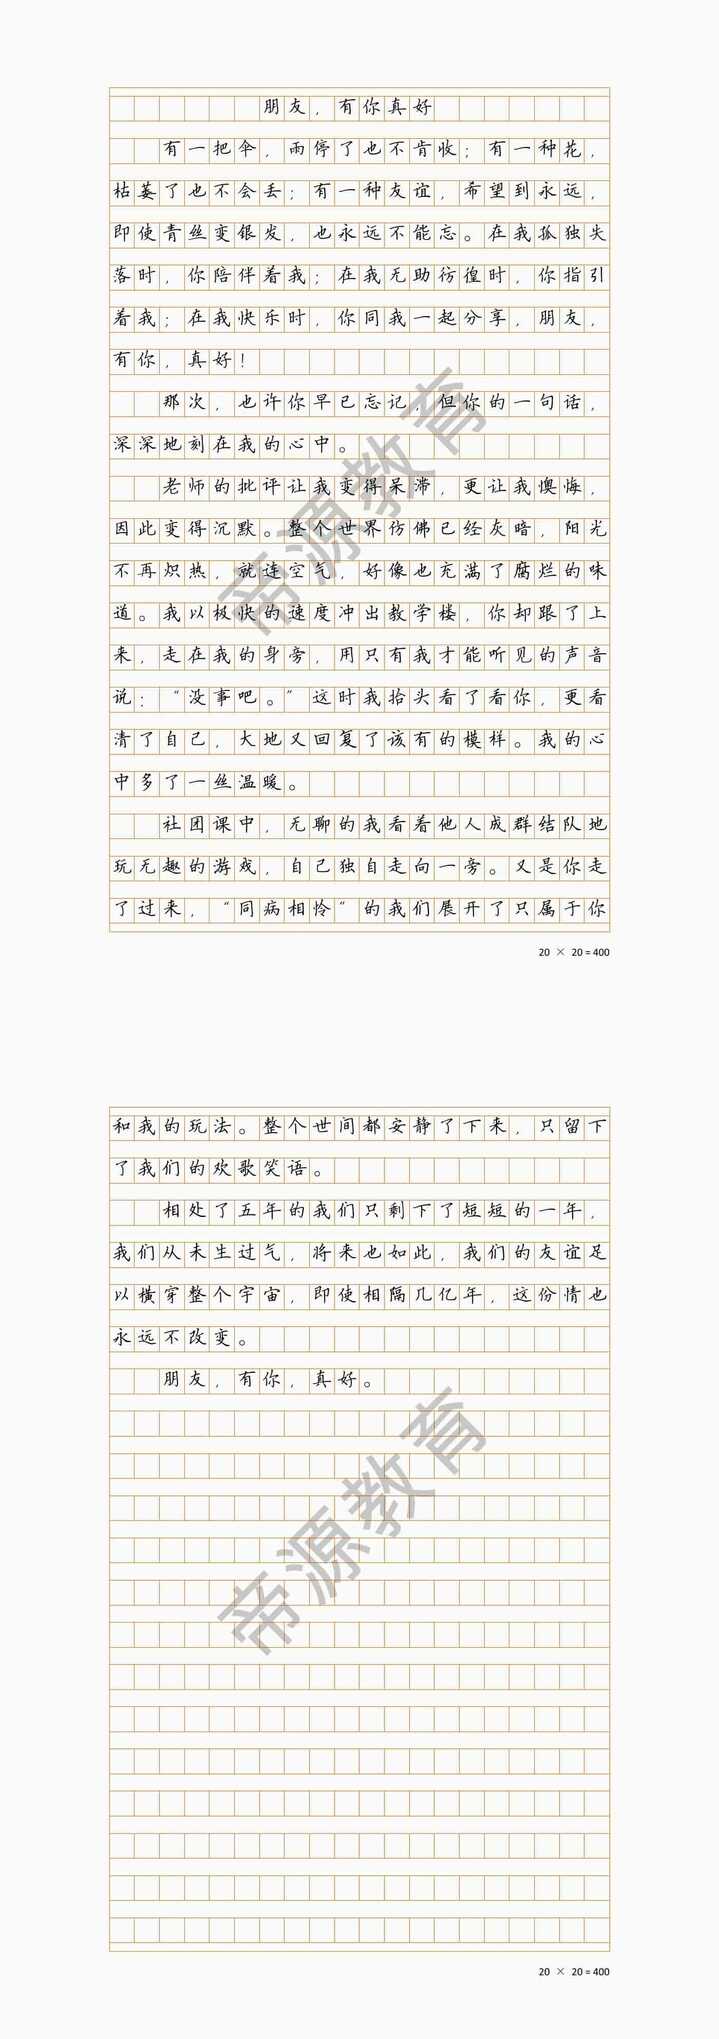 朋友，有你真好
有一把伞，雨停了也不肯收；有一种花，
枯萎了也不会丢；有一种友谊，希望到永远，
即使青丝变银发，也永远不能忘。在我孤独失
落时，你陪伴着我；在我无助彷徨时，你指引
着我；在我快乐时，你同我一起分享，朋友，
有你，真好！
那次，也许你早已忘记，但你的一句话，
深深地刻在我的心中。
老师的批评让我变得呆滞，更让我懊悔，
因此变得沉默。整个世界仿佛已经灰暗，阳光
不再炽热，就连空气，好像也充满了腐烂的味
道。我以极快的速度冲出教学楼，你却跟了上
来，走在我的身旁，用只有我才能听见的声音
说：“没事吧。”这时我抬头看了看你，更看
清了自己，大地又回复了该有的模样。我的心
中多了一丝温暖。
社团课中，无聊的我看着他人成群结队地
玩无趣的游戏，自己独自走向一旁。又是你走
了过来，“同病相怜”的我们展开了只属于你
20 × 20 = 400
和我的玩法。整个世间都安静了下来，只留下
了我们的欢歌笑语。
相处了五年的我们只剩下了短短的一年，
我们从未生过气，将来也如此，我们的友谊足
以横穿整个宇宙，即使相隔几亿年，这份情也
永远不改变。
朋友，有你，真好。
20 × 20 = 400
帝源教育
帝源教育